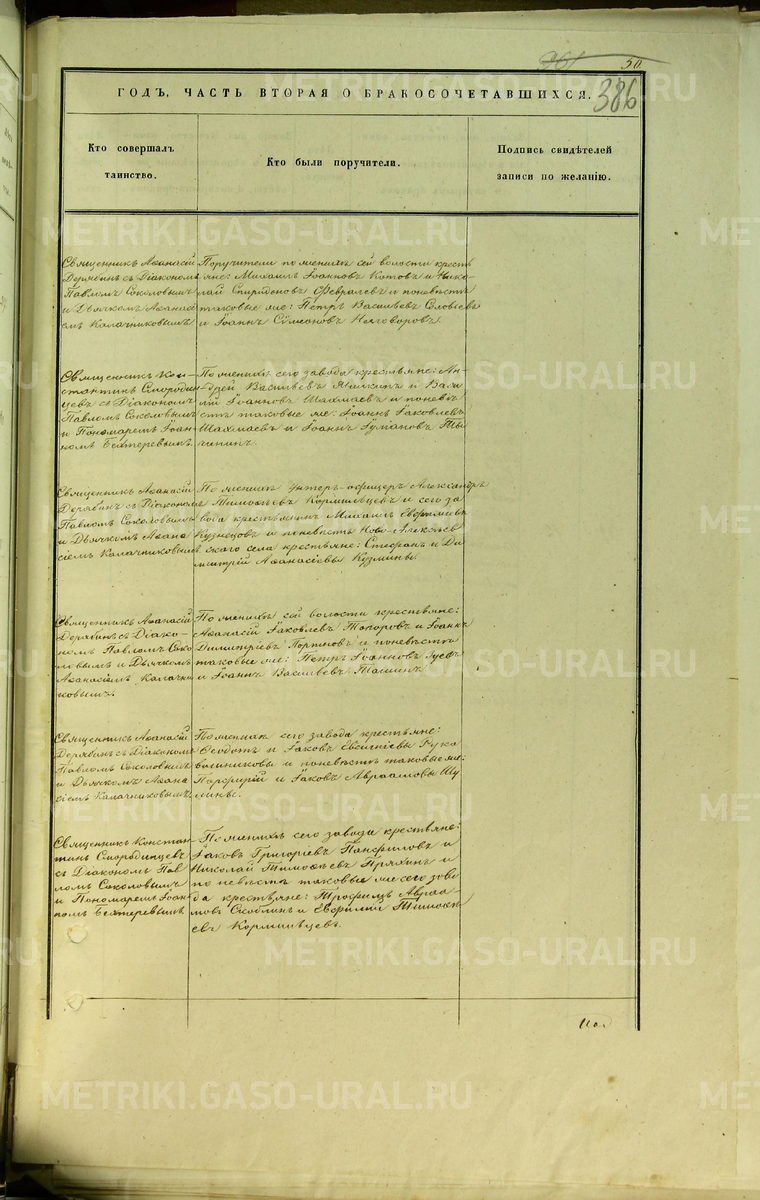 50
386
ГОДЪ, ЧАСТЬ ВТОРАЯ О БРАКОСОЧЕТАВШИХСЯ.
Кто совершалъ
таинство.
Кто были поручители.
Подпись свидѣтелей
записи по желанію.
Священникъ Аѳанасій
Дерябинъ съ Діакономъ
Павломъ Соколовымъ
и Дьячкомъ Аѳанасі
емъ Калачниковымъ.
Поручители по женихѣ сей волости кресть
яне: Михаилъ Іоанновъ Котовъ и Нико-
лай Спиридоновъ Февралевъ и по невѣстѣ
таковые же: Петръ Васильевъ Соловьевъ
и Іоаннъ Сѵмеоновъ
Священникъ Кон-
стантинъ Смородин
цевъ съ Діакономъ
Павломъ Соколовымъ
и Пономаремъ Іоан
номъ Бехтеревымъ.
По женихѣ сего завода крестьяне: Ан-
дрей Васильевъ и Васи
лій Іоанновъ Шахмаевъ и по невѣ
стѣ таковые же: Іоаннъ Іаковлевъ
Шахмаевъ и Іоаннъ
Священникъ Аѳанасій
Дерябинъ съ Діакономъ
Павломъ Соколовымъ
и Дьячкомъ Аѳана
сіемъ Калачниковымъ
По женихѣ унтеръ-офицеръ Александръ
Тимоѳеевъ Кормильцевъ и сего за
вода крестьянинъ Михаилъ
Кузнецовъ и по невѣстѣ Ново-Алексѣев
скаго села крестьяне: Стефанъ и Ди
митрій Аѳанасіевы Кузмины.
Священникъ Аѳанасій
Дерябинъ съ Діако-
номъ Павломъ Соко
ловымъ и Дьячкомъ
Аѳанасіемъ Калачни
ковымъ.
По женихѣ сей волости крестьяне:
Аѳанасій Іаковлевъ Топоровъ и Іоаннъ
Димитріевъ Портновъ и по невѣстѣ
таковые же: Петръ Іоанновъ Гусевъ
и Іоаннъ Васильевъ
Священникъ Аѳанасій
Дерябинъ съ Діакономъ
Павломъ Соколовымъ
и Дьячкомъ Аѳана
сіемъ Калачниковымъ.
По женихѣ сего завода крестьяне:
Ѳеодотъ и Іаковъ Евсигніевы Рука
вичниковы и по невѣстѣ таковые же:
Порфирій и Іаковъ Авраамовы Шу
лины.
Священникъ Констан
тинъ Смородинцевъ
съ Діакономъ Пав
ломъ Соколовымъ
и Пономаремъ Іоан
номъ Бехтеревымъ
По женихѣ сего завода крестьяне:
Іаковъ Григоріевъ Панфиловъ и
Николай Тимоѳеевъ Пряхинъ и
по невѣстѣ таковые же сего заво
да крестьяне: Трофимъ Авраа-
мовъ Скоблинъ и Евфимій Тимоѳе
евъ Кормильцевъ.
METRIKI.GASO-URAL.RU